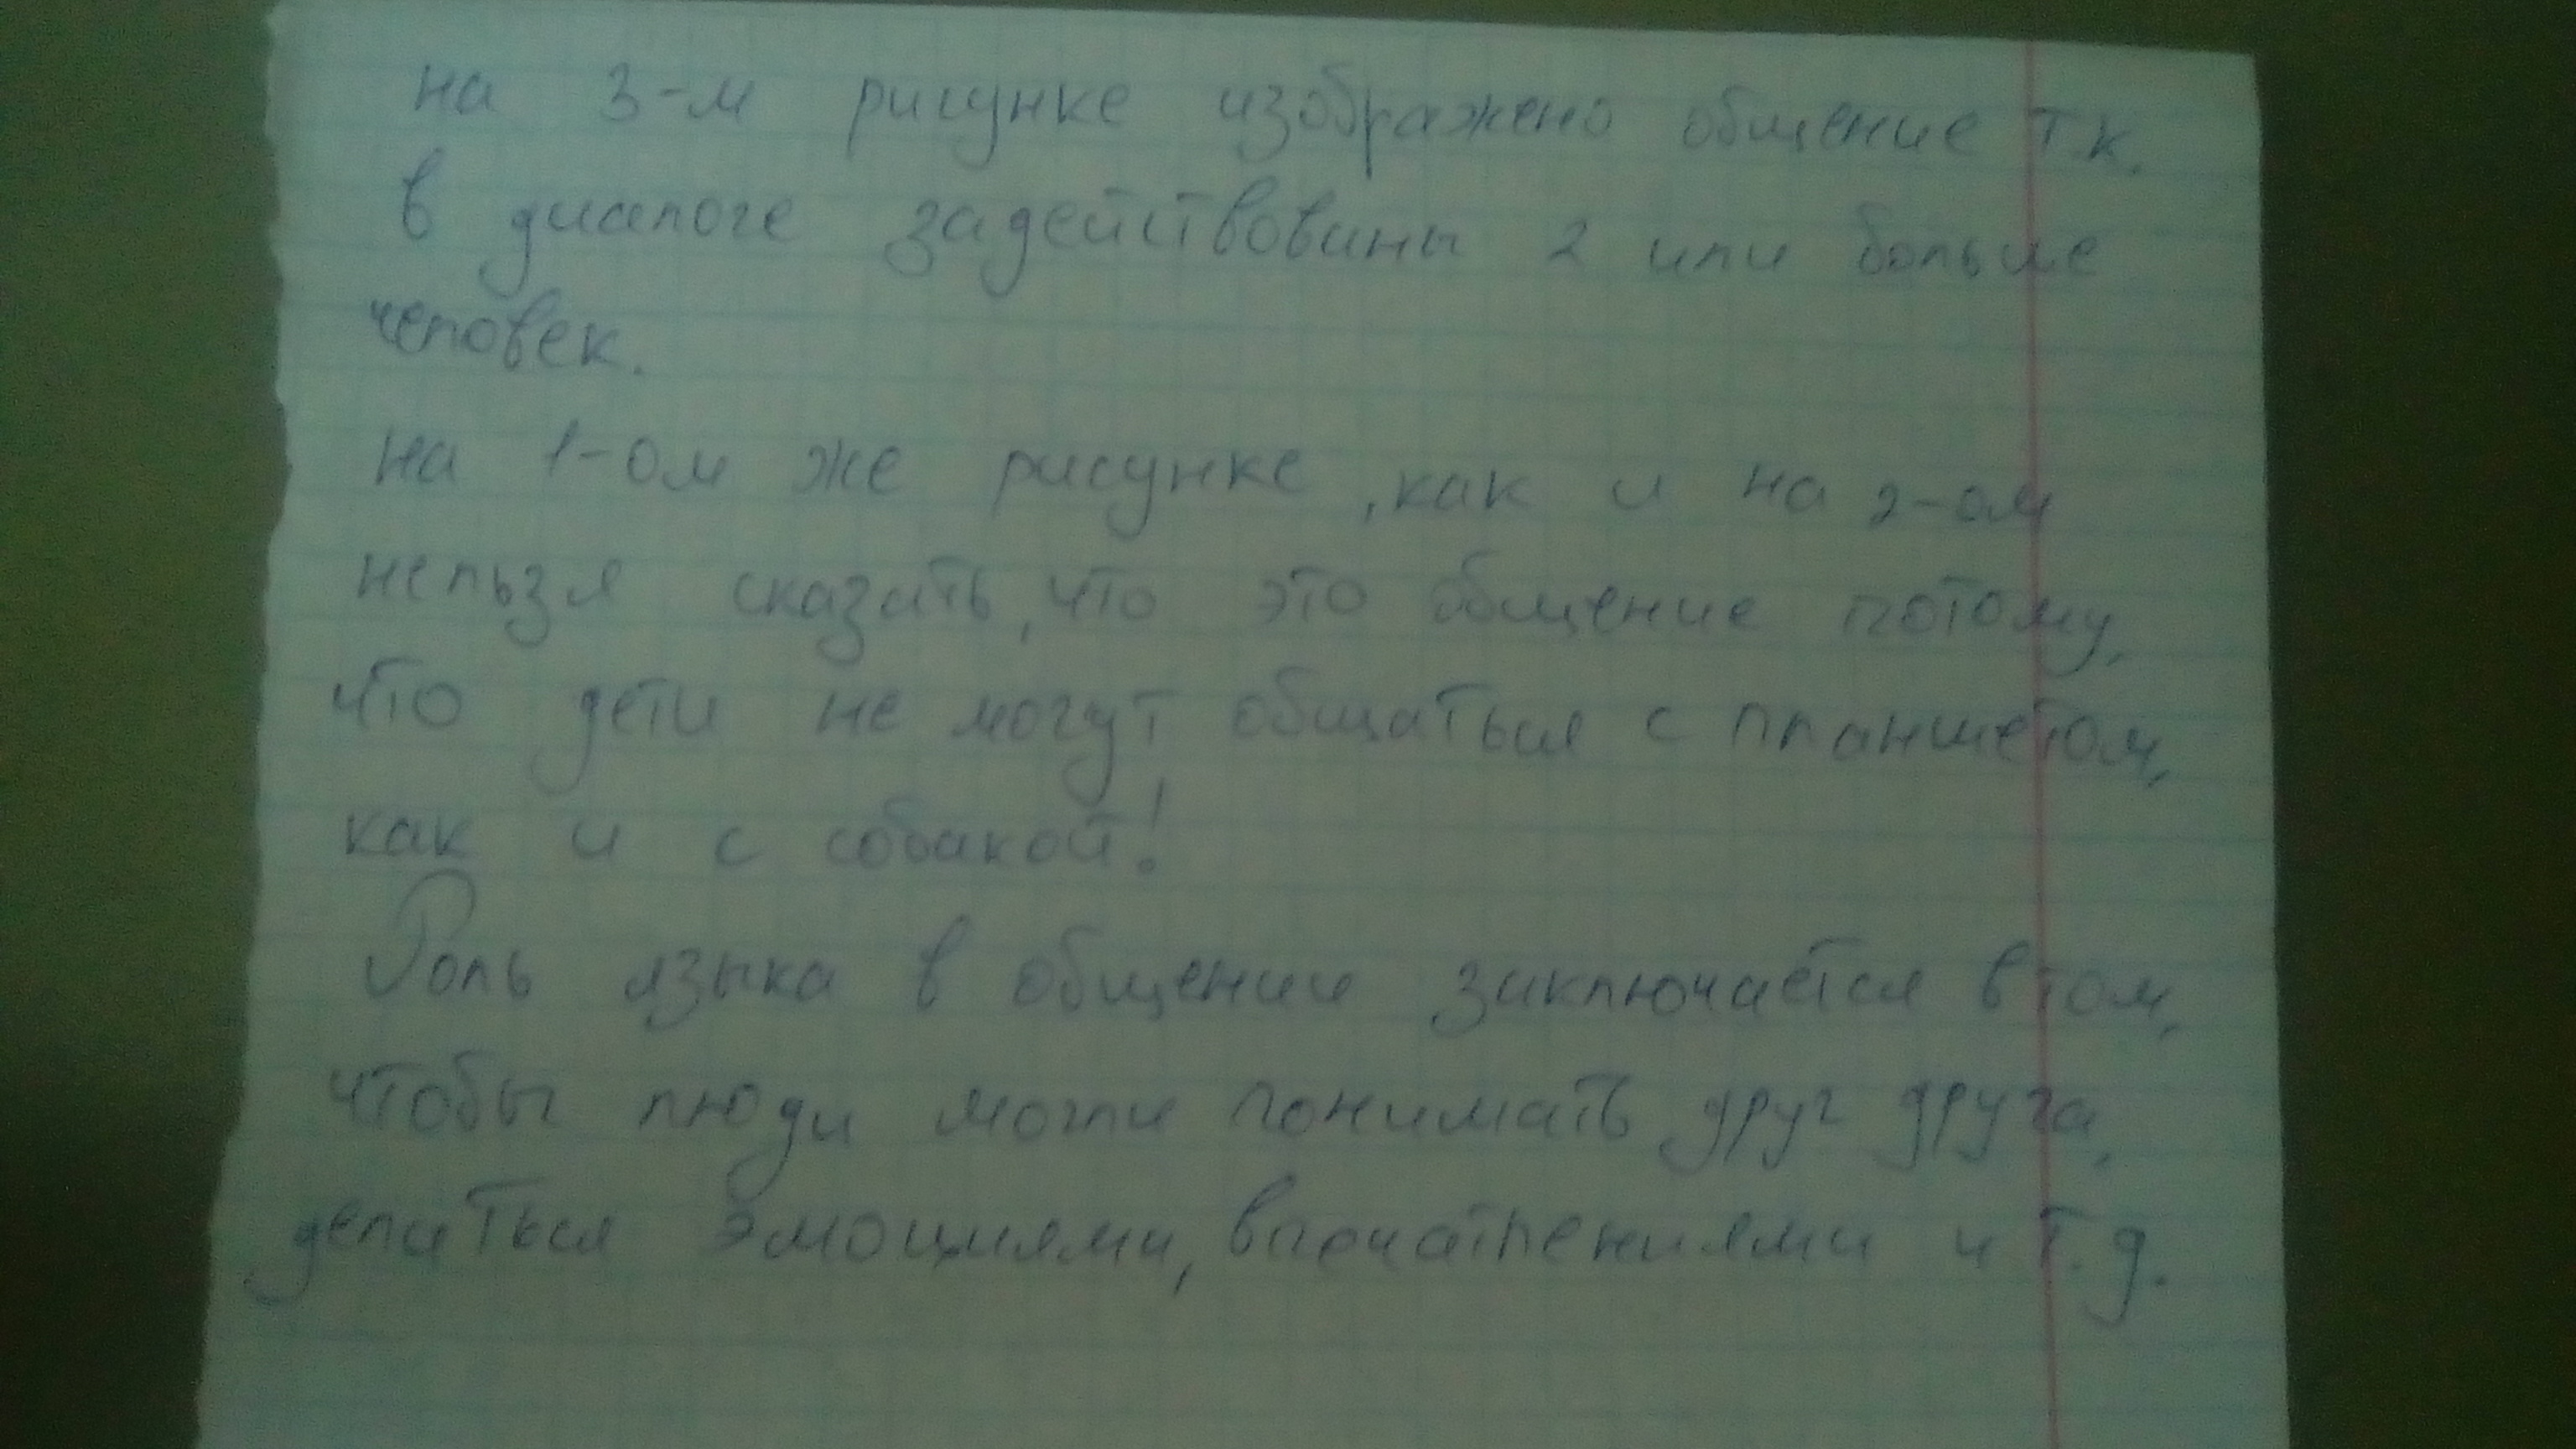 на 3-м рисунке изображено общение т.к.
в диалоге задействованы 2 или больше
человек.
на 1-ом же рисунке, как и на 2-ом
нельзя сказать, что это общение потому,
что дети не могут общаться с планшетом,
как и с собакой!
Роль языка в общении заключается в том,
чтобы люди могли понимать друг друга,
делиться эмоциями, впечатлениями и т.д.